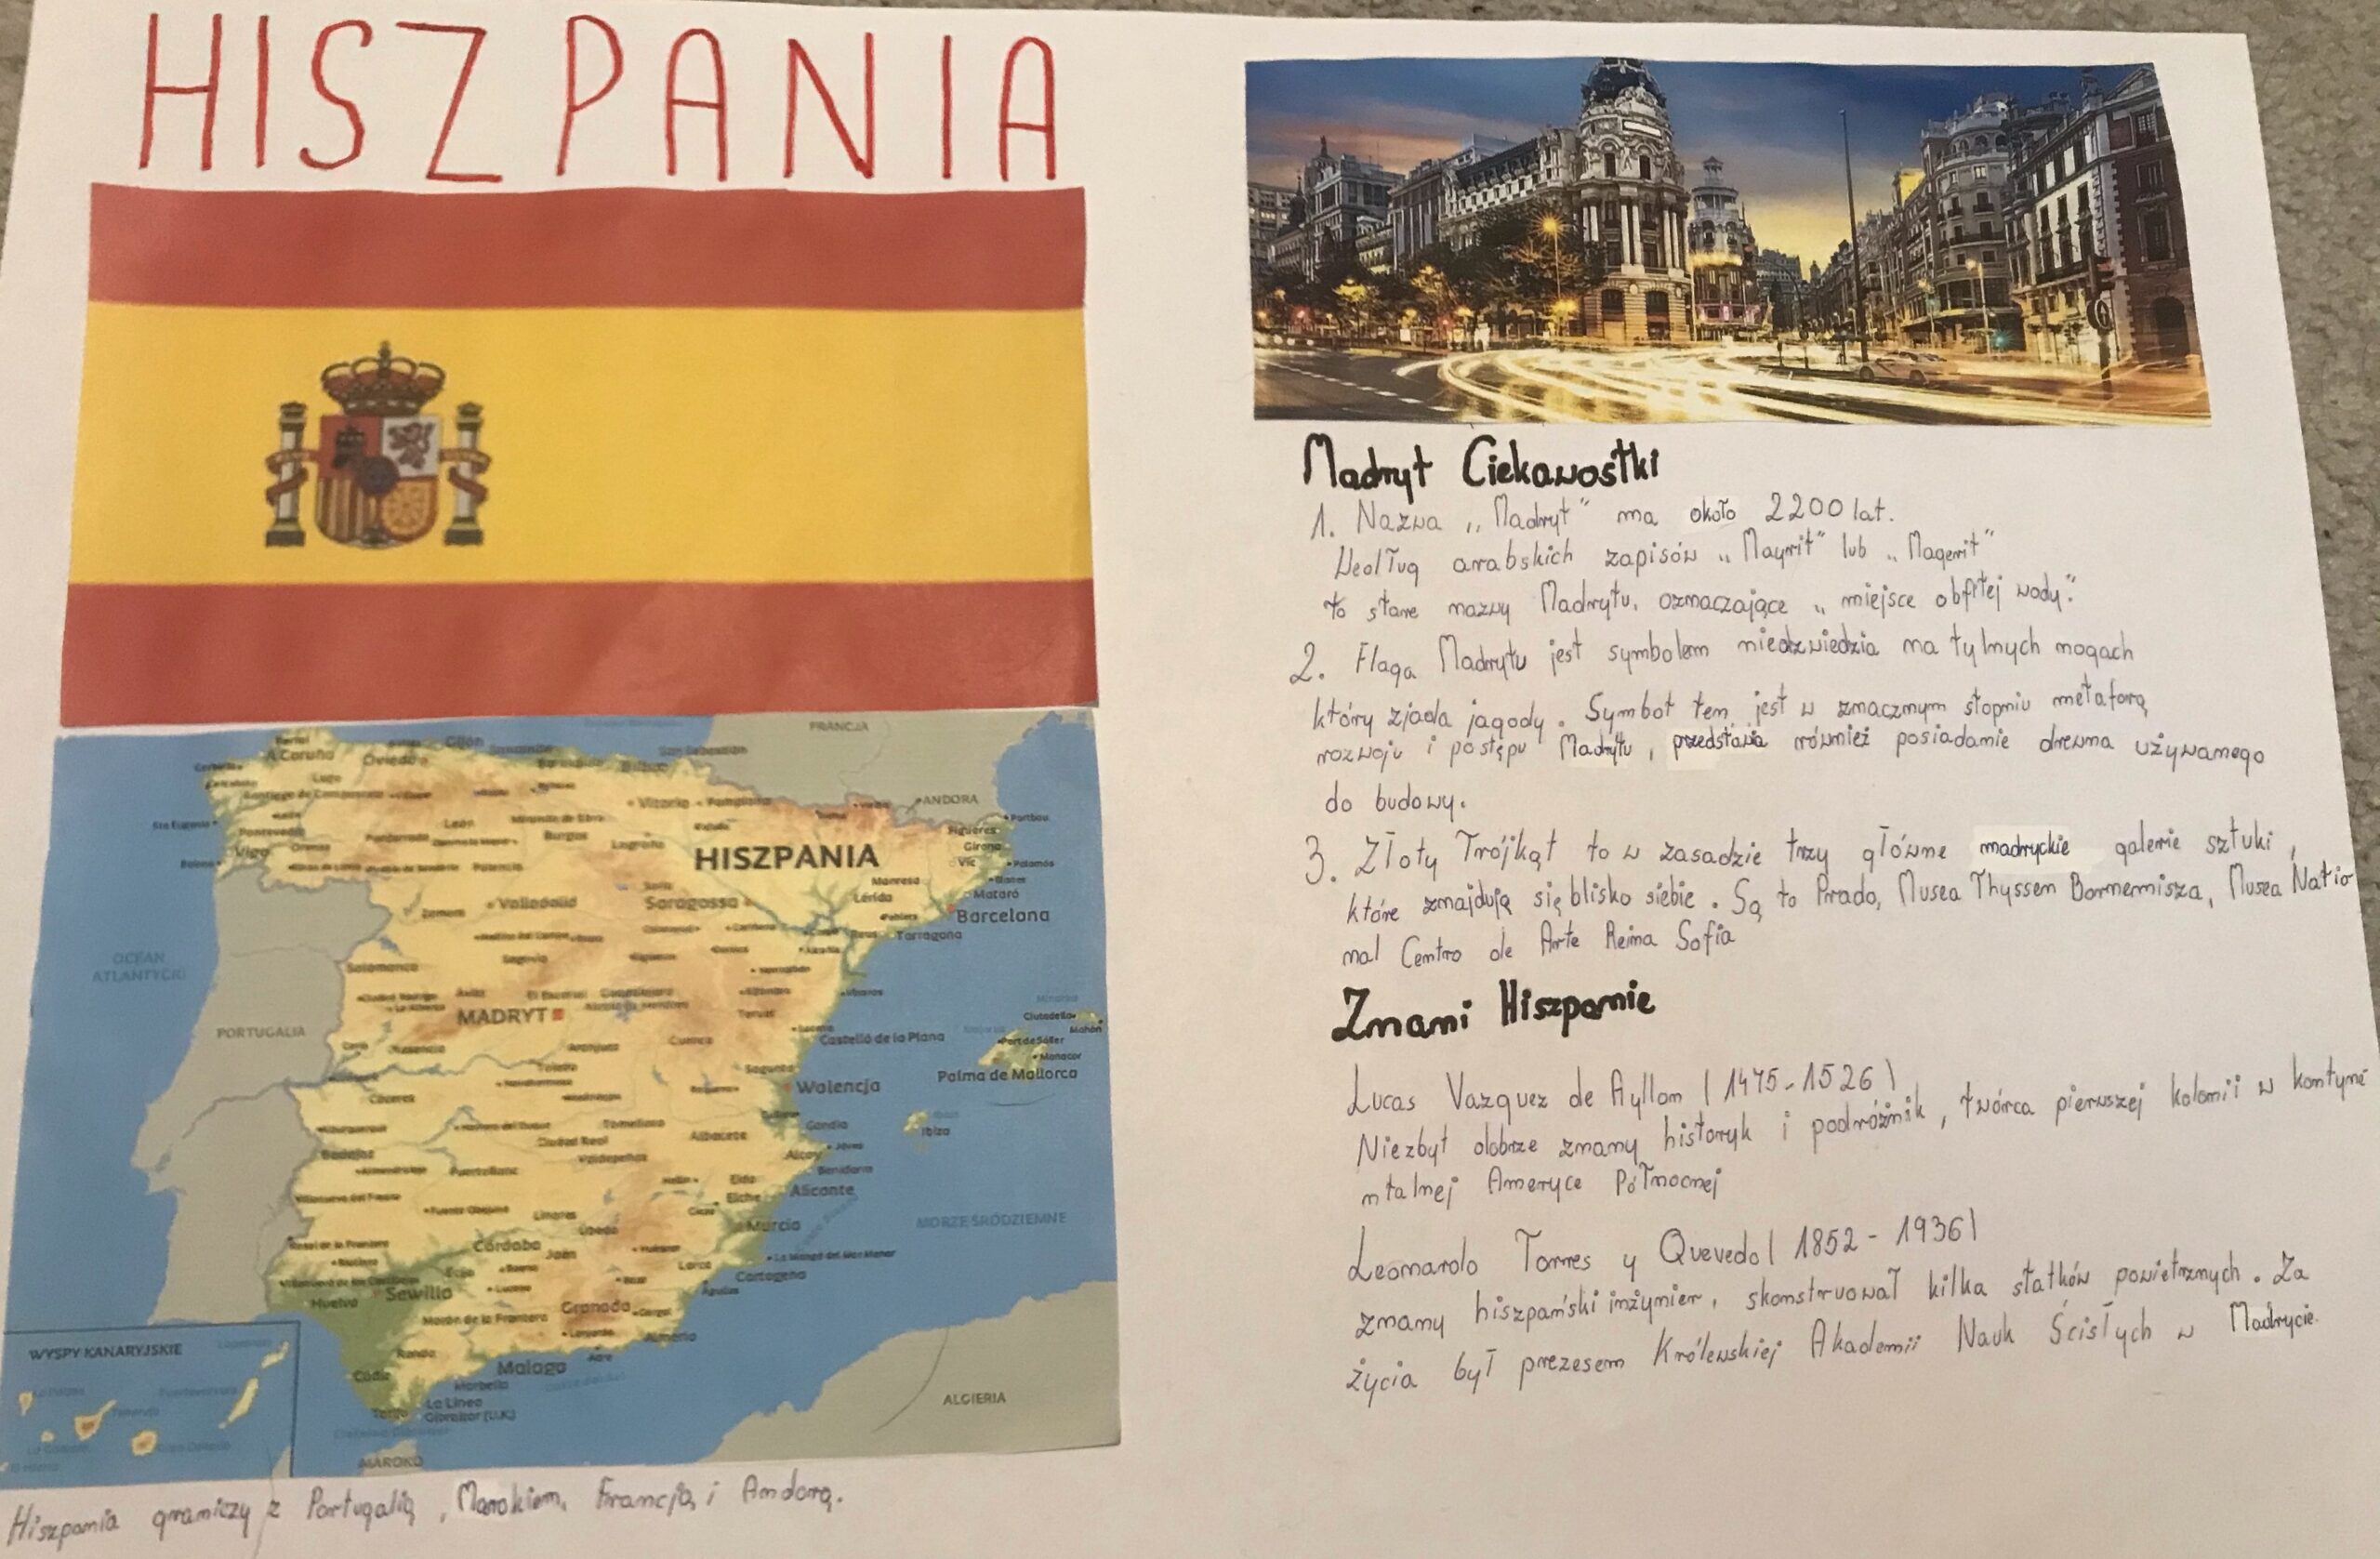 HISZPANIA
FRANCJA
ANDORA
A Coruña
Oviedo
Gijón
San Sebastián
Vitoria
Pamplona
León
Burgos
Logroño
Vigo
HISZPANIA
Figueres
Girona
Vic
Portbou
Palamós
Blanes
Mataró
Manresa
Lérida
Barcelona
Tarragona
Valladolid
Saragossa
Zamora
Salamanca
Segovia
OCEAN
ATLANTYCKI
PORTUGALIA
MADRYT
Teruel
Cuenca
Toledo
Castelló de la Plana
Sagunto
Walencja
Ciutadella
Mahón
Port de Sóller
Manacor
Palma de Mallorca
Ibiza
Gandia
Cáceres
Badajoz
Ciudad Real
Albacete
Alcoy
Benidorm
Alicante
Elda
Elche
Murcia
MORZE ŚRÓDZIEMNE
La Manga del Mar Menor
Cartagena
Lorca
Águilas
Linares
Úbeda
Córdoba
Jaén
Sewilla
Huelva
Granada
Morón de la Frontera
Almería
Ronda
Malaga
Marbella
Cádiz
La Línea
Gibraltar (U.K.)
WYSPY KANARYJSKIE
MAROKO
ALGIERIA
Hiszpania graniczy z Portugalią, Marokiem, Francją, i Andorą.
Madryt Ciekawostki
1. Nazwa „Madryt" ma około 2200 lat.
Według arabskich zapisów „Mayrit" lub „Magerit"
to stare nazwy Madrytu, oznaczające „miejsce obfitej wody".
2. Flaga Madrytu jest symbolem niedźwiedzia na tylnych nogach
który zjada jagody. Symbol ten jest w znacznym stopniu metaforą
rozwoju i postępu Madrytu, przedstawia również posiadanie drewna używanego
do budowy.
3. Złoty Trójkąt to w zasadzie trzy główne madryckie galerie sztuki,
które znajdują się blisko siebie. Są to Prado, Musea Thyssen Bornemisza, Musea Natio
nal Centro de Arte Reina Sofia
Znani Hiszpanie
Lucas Vazquez de Ayllon (1475-1526)
Niezbyt dobrze znany historyk i podróżnik, twórca pierwszej kolonii w kontyne
ntalnej Ameryce Północnej
Leonardo Torres y Quevedo (1852 - 1936)
znany hiszpański inżynier, skonstruował kilka statków powietrznych. Za
życia był prezesem Królewskiej Akademii Nauk Ścisłych w Madrycie.